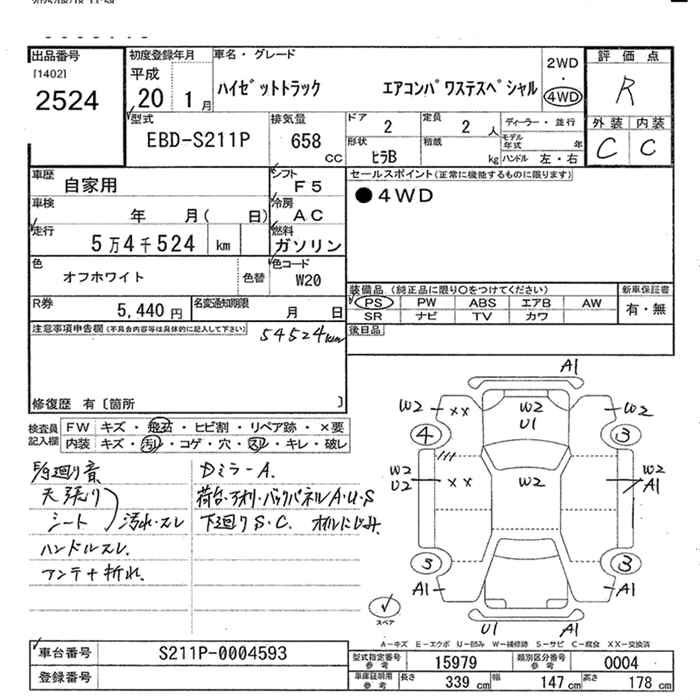 出品番号
[1402]
2524
初度登録年月
平成
20 1月
車名・グレード
ハイゼットトラック エアコンパワステスペシャル
2WD
・
4WD
評価点
R
外装 内装
C C
型式
EBD-S211P
排気量
658
CC
ドア
2
定員
2 人
ディーラー・並行
モデル年式 年
形状
ヒラB
積載
kg
ハンドル 左・右
車歴
自家用
シフト
F5
車検
年 月( 日)
冷房
AC
走行
5万4千524 km
燃料
ガソリン
色
オフホワイト
色替
色コード
W20
R券
5,440 円
名変通知期限
月 日
セールスポイント(正常に機能するものに限ります)
●4WD
装備品(純正品に限り○をつけてください)
PS PW ABS エアB AW
SR ナビ TV カワ
新車保証書
有・無
後日品
注意事項申告欄(不具合内容等は具体的に記入して下さい)
54524km
修復歴 有〔箇所 〕
検査員記入欄
FW キズ・飛石・ヒビ割・リペア跡・×要
内装 キズ・汚れ・コゲ・穴・スレ・キレ・破レ
天張り
シート
汚れ・スレ
ハンドルスレ
アンテナ折れ
Dミラー A.
荷台・アオリ・バックパネルA・U・S
下廻りS・C. オイルにじみ
A1
W2 ×× W2 U1 W2
4 3
W2 U2 ×× W2 W2 A1
3 3
A1 A1
U1 A1
スペア
A－キズ E－エクボ U－凹み W－補修跡 S－サビ C－腐食 XX－交換済
車台番号
S211P-0004593
登録番号
型式指定番号 参考
15979
類別区分番号 参考
0004
車庫証明用 参考
長さ 339 cm 幅 147 cm 高さ 178 cm